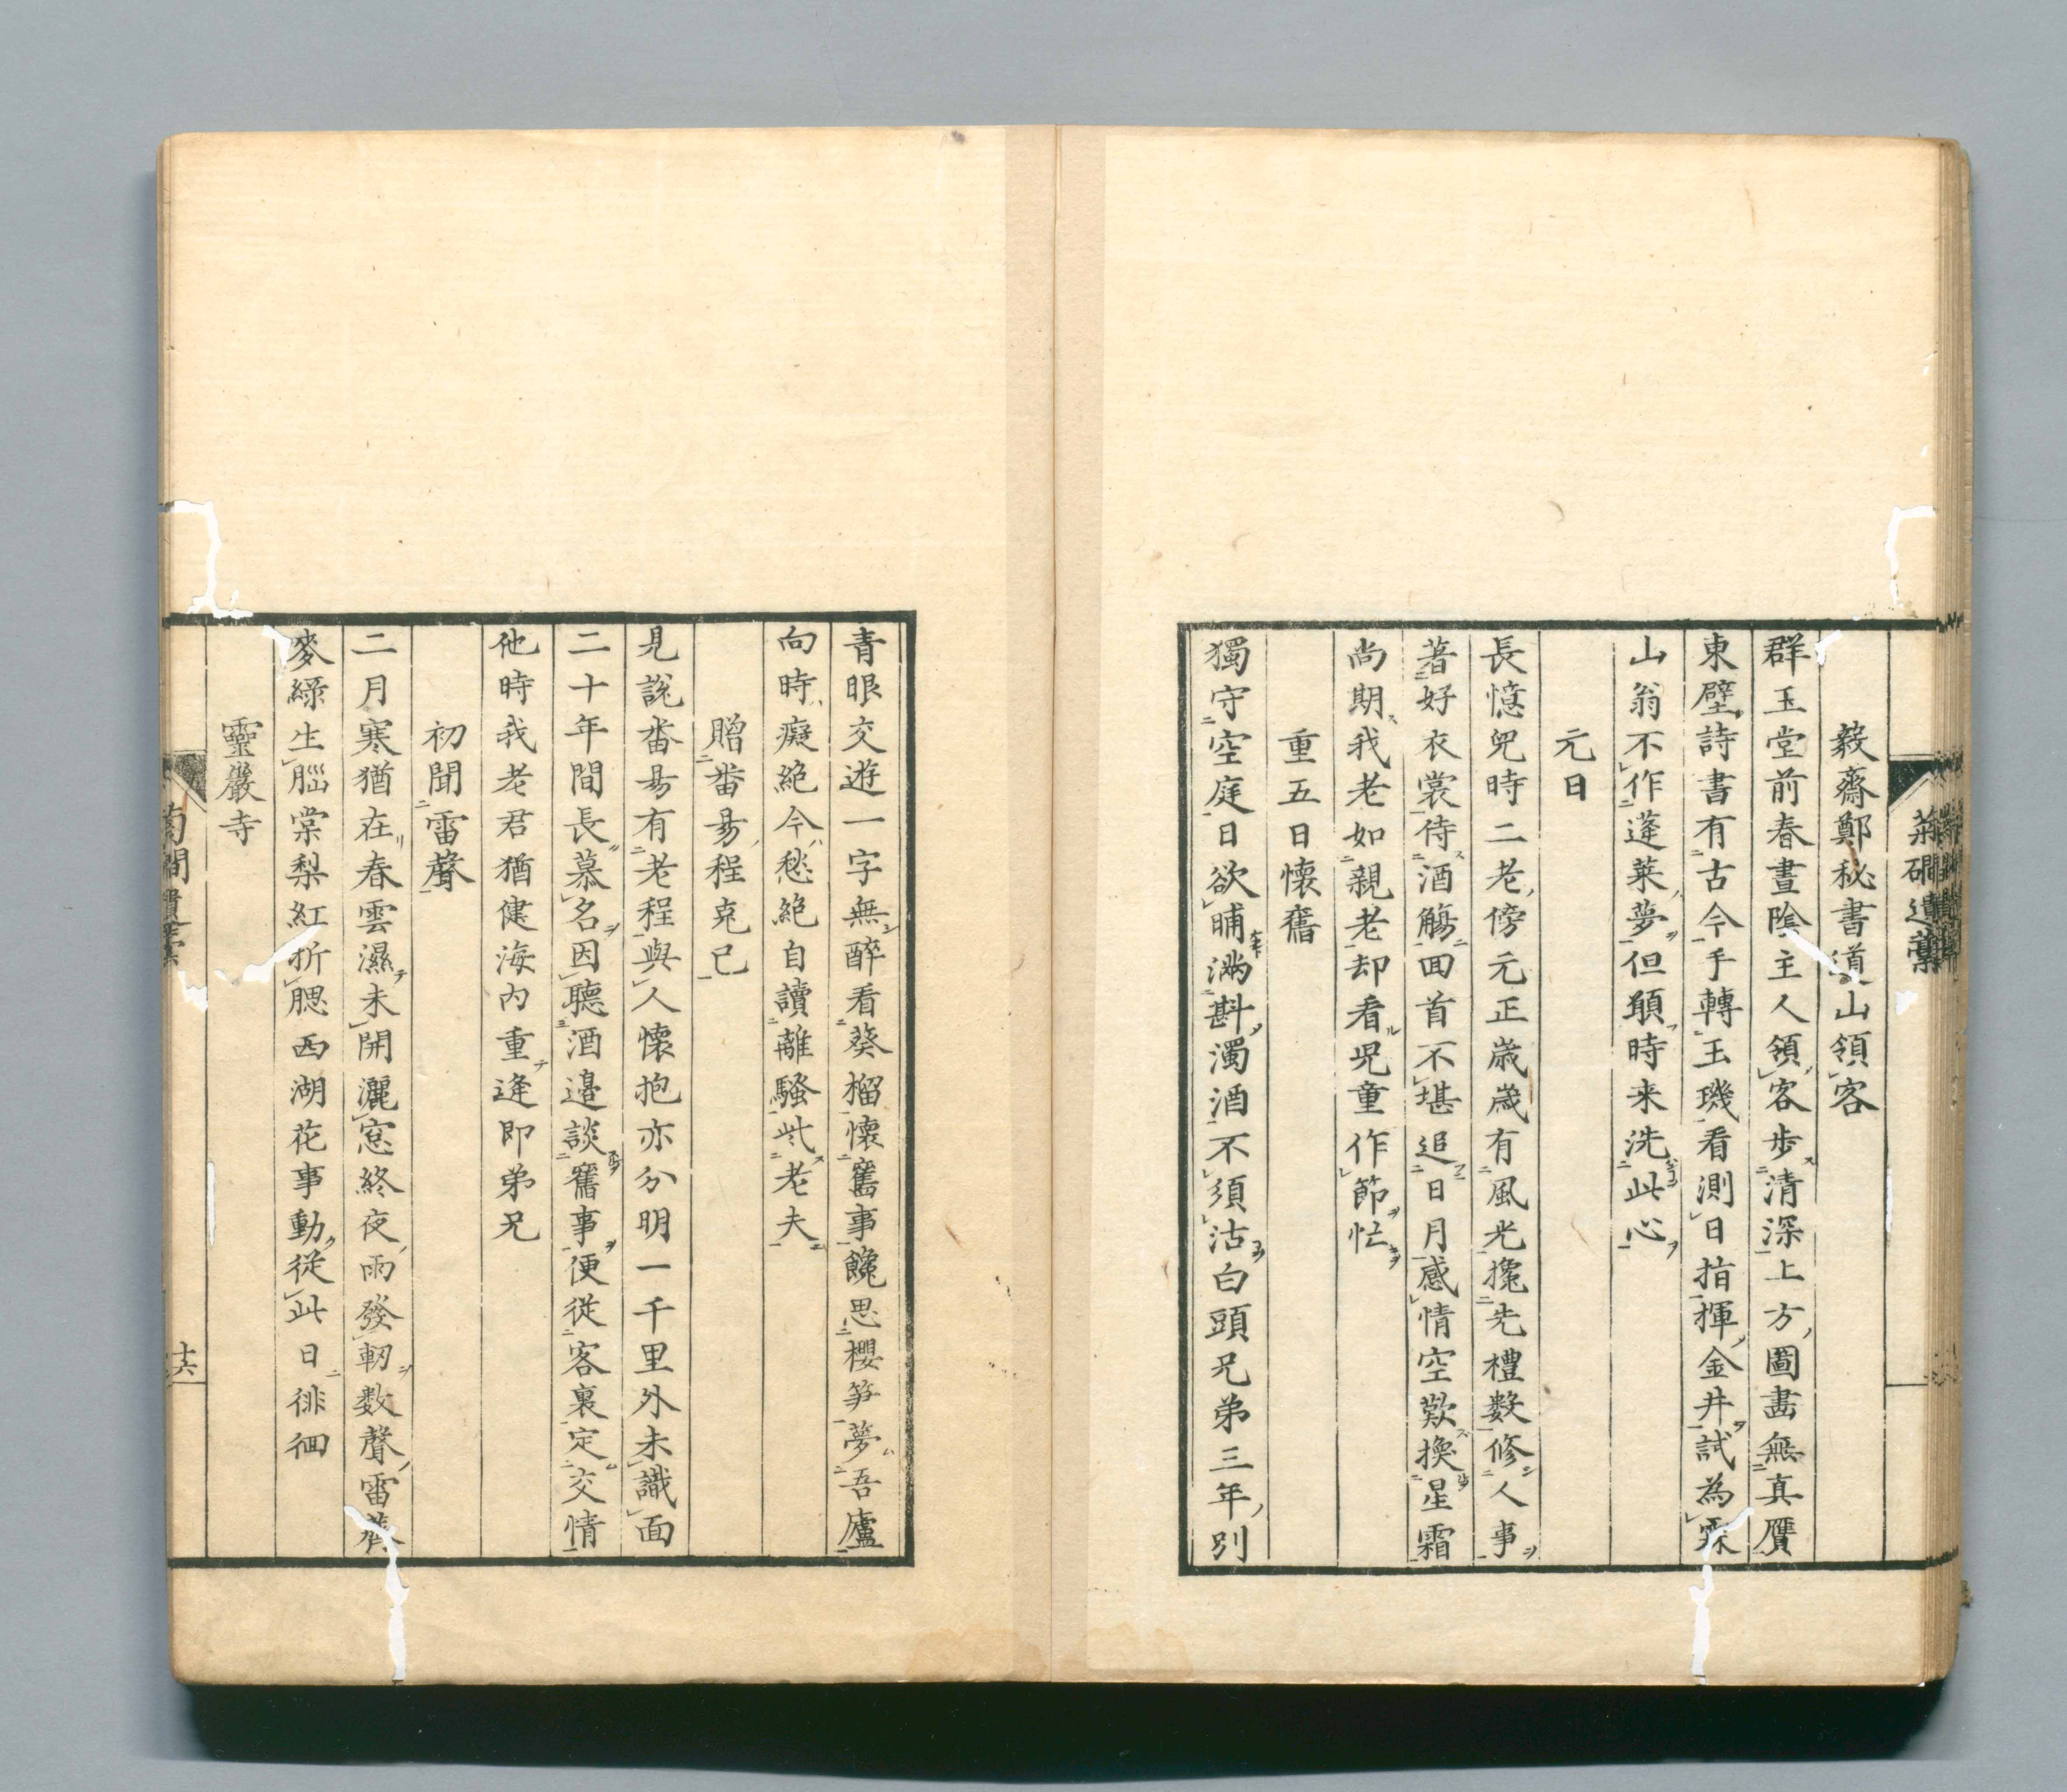 菊磵遺藁
毅齋鄭秘書道山領客
群玉堂前春晝陰主人領客步清深上方圖畵無真贋
東壁詩書有古今手轉玉璣看測日指揮金井試為霖
山翁不作蓬萊夢但願時来洗此心
元日
長憶兒時二老傍元正歳歳有風光攙先禮数修人事
著好衣裳侍酒觴回首不堪追日月感情空歎換星霜
尚期我老如親老却看児童作節忙
重五日懷舊
獨守空庭日欲晡滿斟濁酒不須沽白頭兄弟三年別
青眼交遊一字無醉看葵榴懷舊事饞思櫻笋夢吾廬
向時癡絶今愁絶自讀離騷訿老夫
贈畨昜程克已
見說畨昜有老程與人懷抱亦分明一千里外未識面
二十年間長慕名因聽酒邉談舊事便從客裏定交情
他時我老君猶健海内重逢即弟兄
初聞雷聲
二月寒猶在春雲濕未開灑窓終夜雨發軔数聲雷薺
麥綠生腦棠梨紅折腮西湖花事動從此日徘徊
靈巖寺
十六